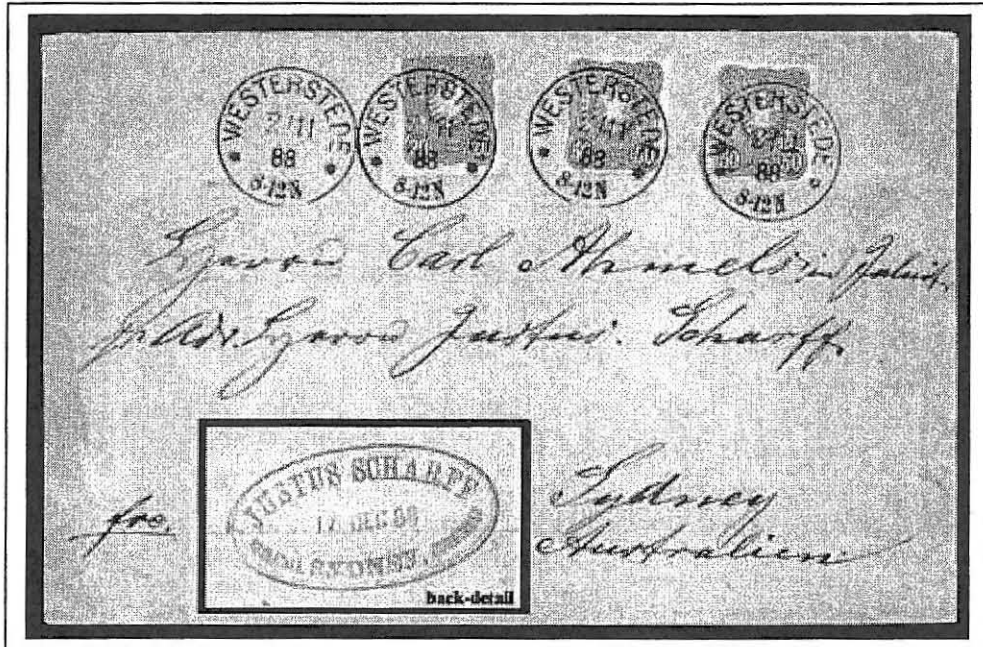 WESTERSTEDE
2/11
88
8-12N
WESTERSTEDE
11
88
8-12N
WESTERSTEDE
2/11
88
8-12N
WESTERSTEDE
2/11
88
8-12N
50 50
Herrn Carl Ahmels in Jaluit.
pr. Adr. Herrn Justus Scharff.
Sydney
Australien
fro.
JUSTUS SCHARFF
17 DEC 88
SYDNEY.
back-detail